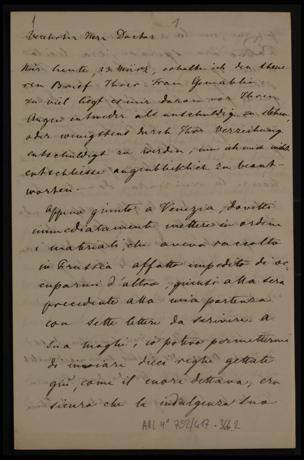 1
Verehrter Herr Doctor
Nur heute, 23 März, erhalte ich den theue-
ren Brief Ihrer Frau Gemahlin
zu viel liegt es mir daran vor Ihren
Augen entweder als unschuldig zu stehen,
oder wenigstens durch Ihre Verzeihung
entschuldigt zu werden, um ich mich nicht
entschliesse augenblicklich zu beant-
worten.
Appena giunto a Venezia, dovetti
immediatamente mettere in ordine
i materiali, che aveva raccolto
in Prussia affatto impedito di oc-
cuparmi d'altro, giunsi alla sera
precedente alla mia partenza
con sette lettere da scrivere a
Sua moglie; io potevo permettermi
di inviare dieci righe gettate
giù, come il cuore dettava, ero
sicuro che la indulgenza Sua
ARL 4° 702/47-366.2